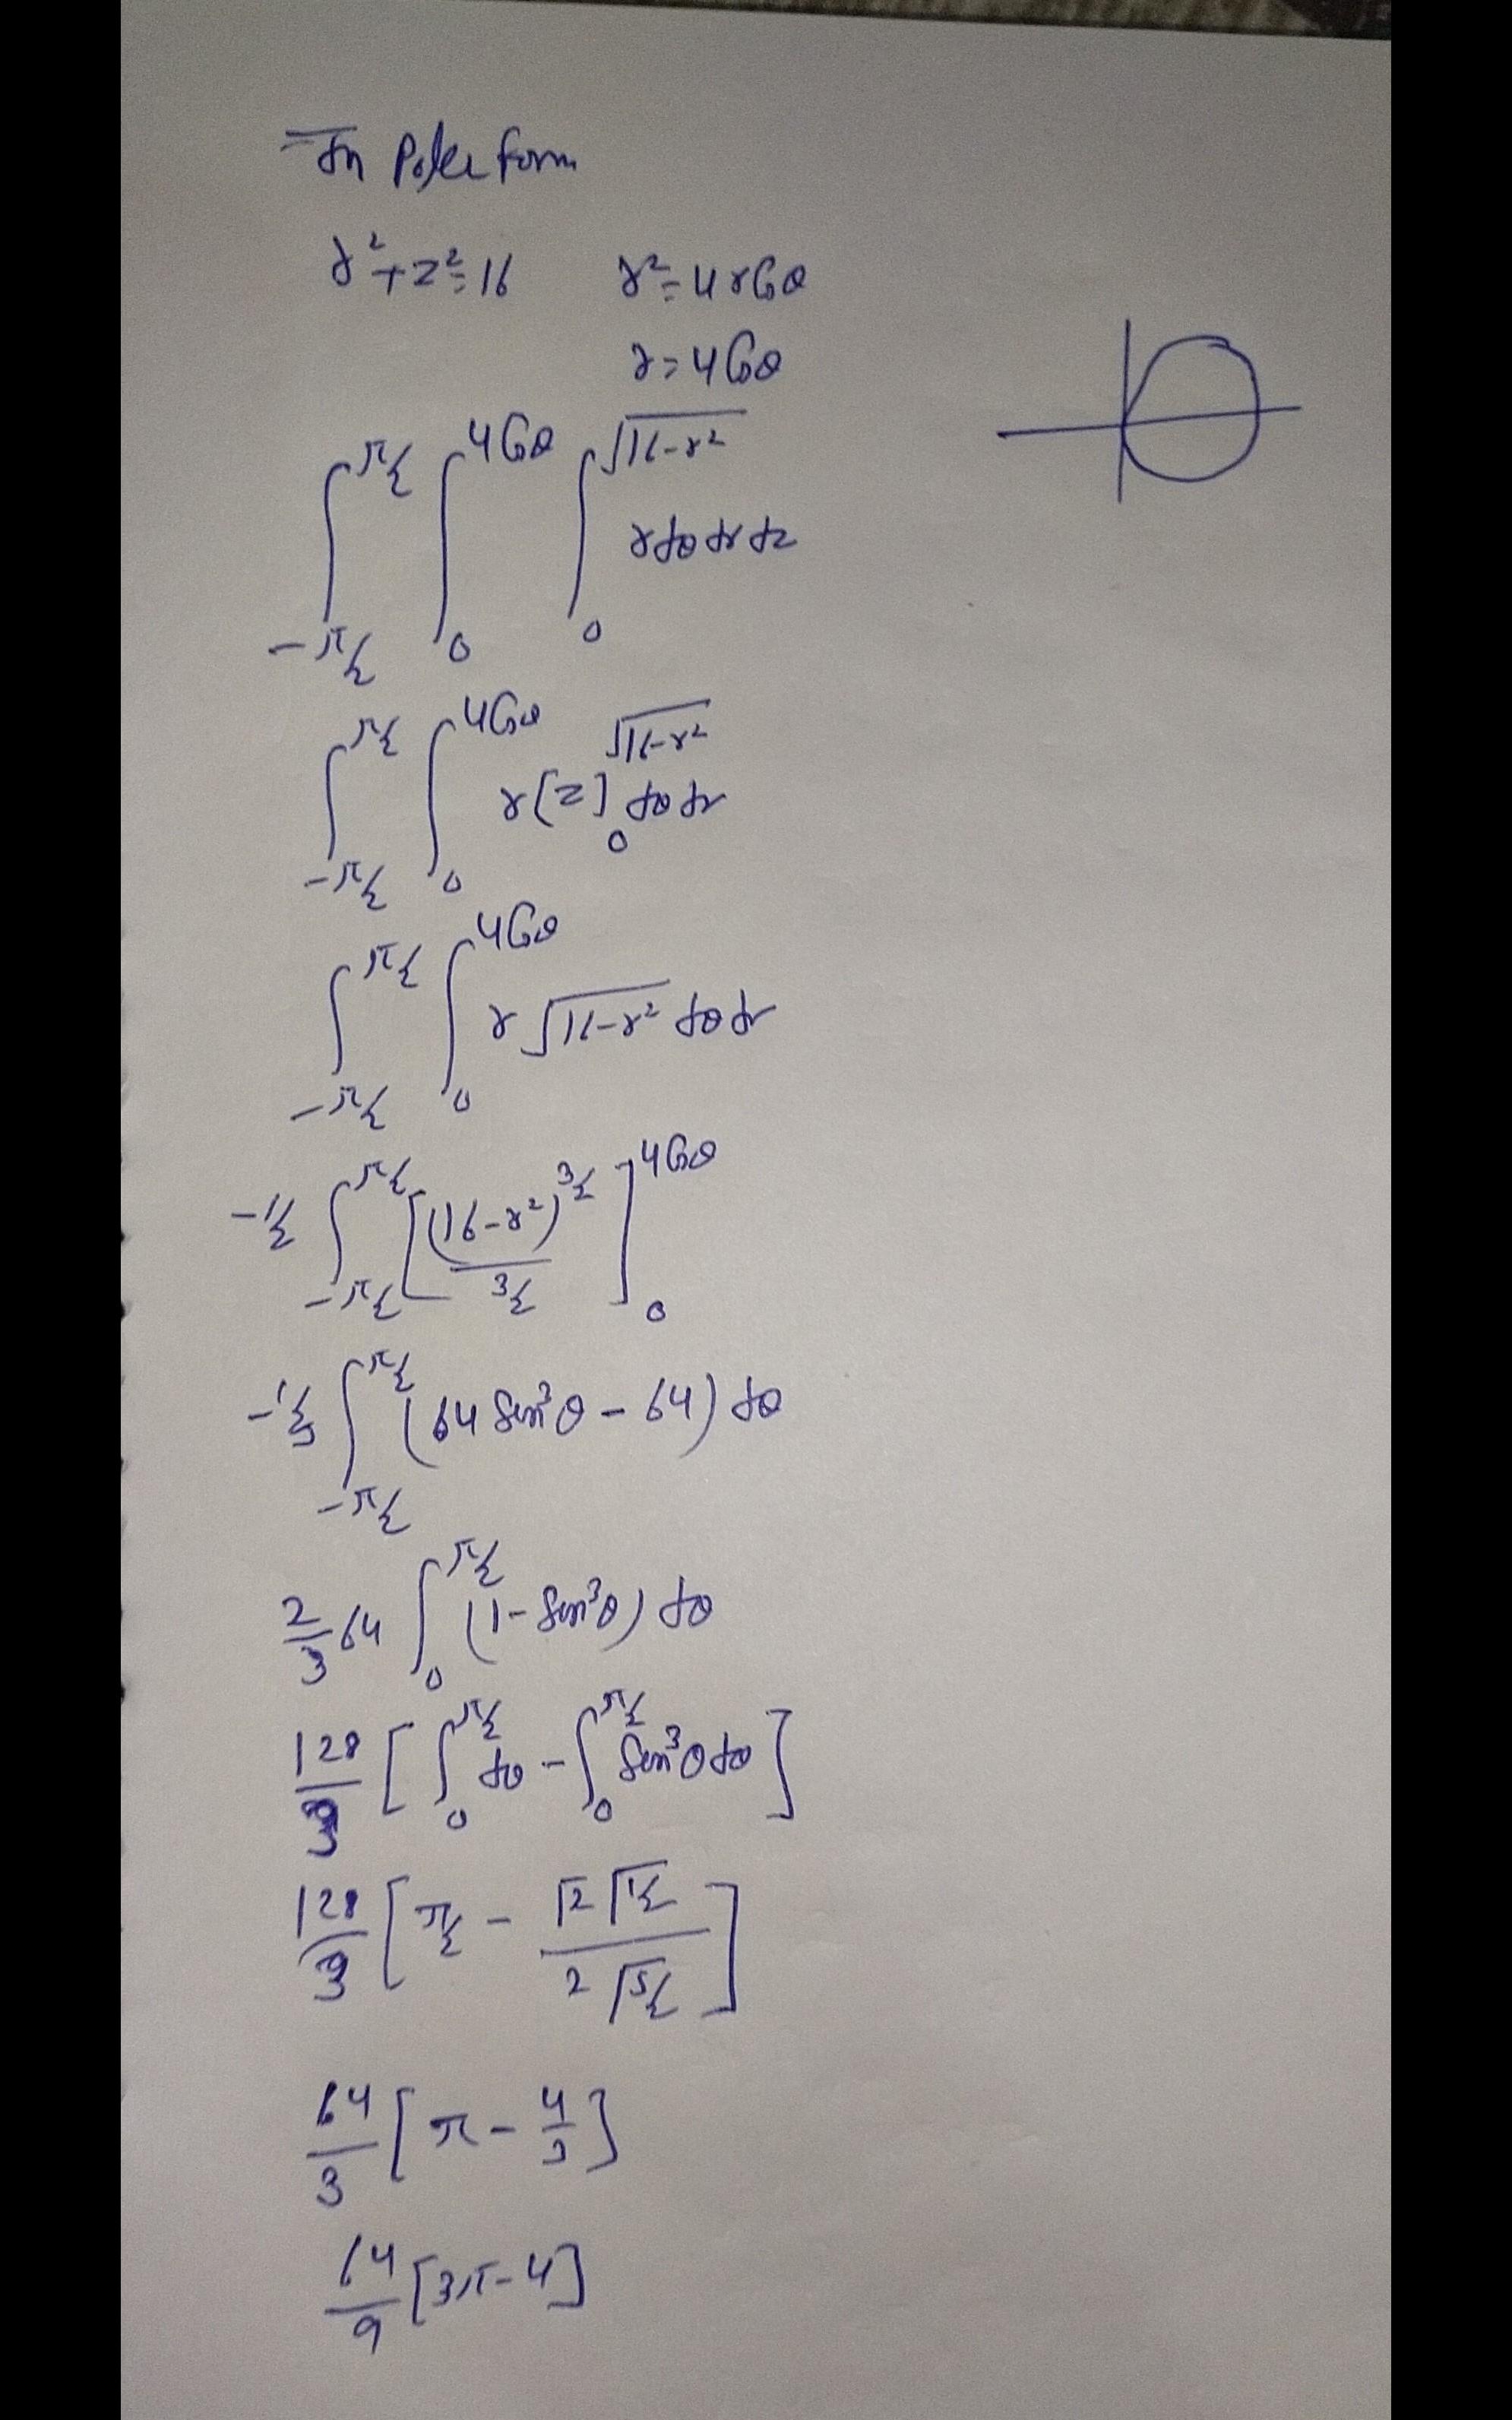 In Polar form
r²+z²=16 r²=4rCosθ
r=4Cosθ
∫_{-π/2}^{π/2} ∫_0^{4Cosθ} ∫_0^{√16-r²} r dθ dr dz
∫_{-π/2}^{π/2} ∫_0^{4Cosθ} r[z]_0^{√16-r²} dθ dr
∫_{-π/2}^{π/2} ∫_0^{4Cosθ} r √16-r² dθ dr
-1/2 ∫_{-π/2}^{π/2} [(16-r²)^{3/2} / 3/2]_0^{4Cosθ}
-1/3 ∫_{-π/2}^{π/2} (64 Sin³θ - 64) dθ
2/3 64 ∫_0^{π/2} (1-Sin³θ) dθ
128/3 [∫_0^{π/2} dθ - ∫_0^{π/2} Sin³θ dθ]
128/3 [π/2 - Γ2 Γ1/2 / 2 Γ5/2]
64/3 [π - 4/3]
64/9 [3π-4]